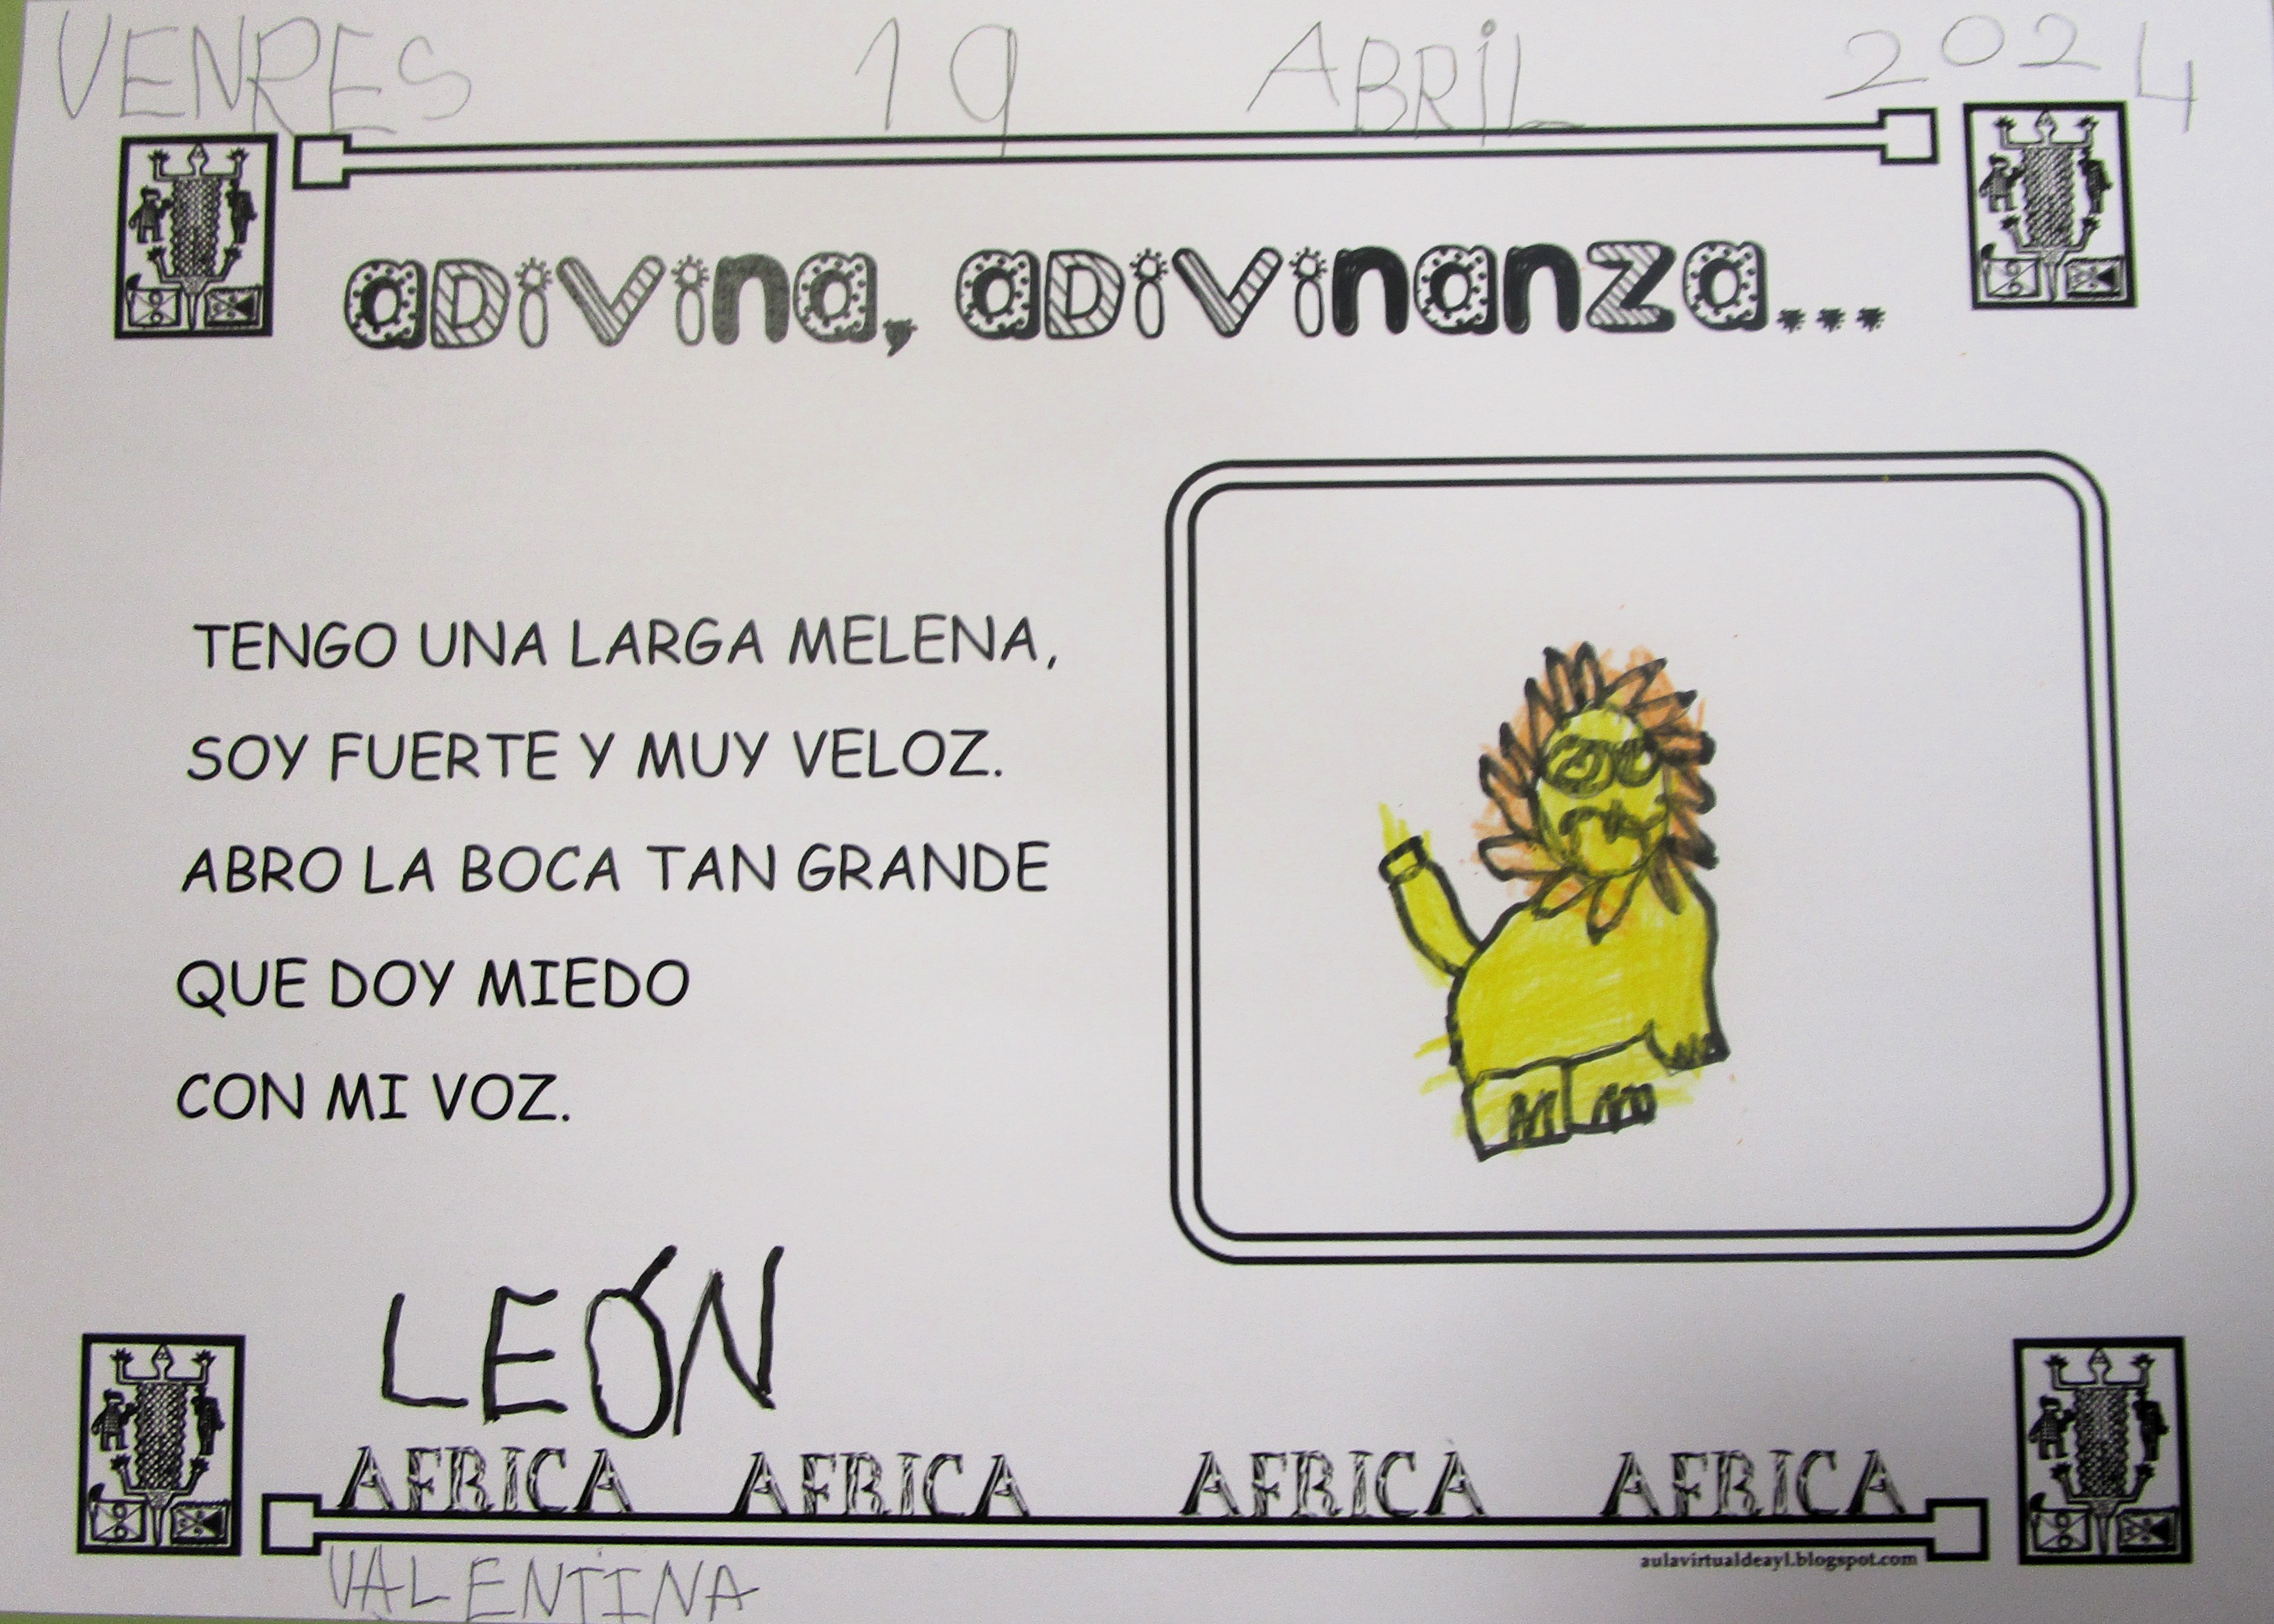 VENRES 19 ABRIL 2024
aDiViNa, aDiViNaNza...
TENGO UNA LARGA MELENA,
SOY FUERTE Y MUY VELOZ.
ABRO LA BOCA TAN GRANDE
QUE DOY MIEDO
CON MI VOZ.
LEÓN
AFRICA AFRICA AFRICA AFRICA
aulavirtualdeayl.blogspot.com
VALENTINA